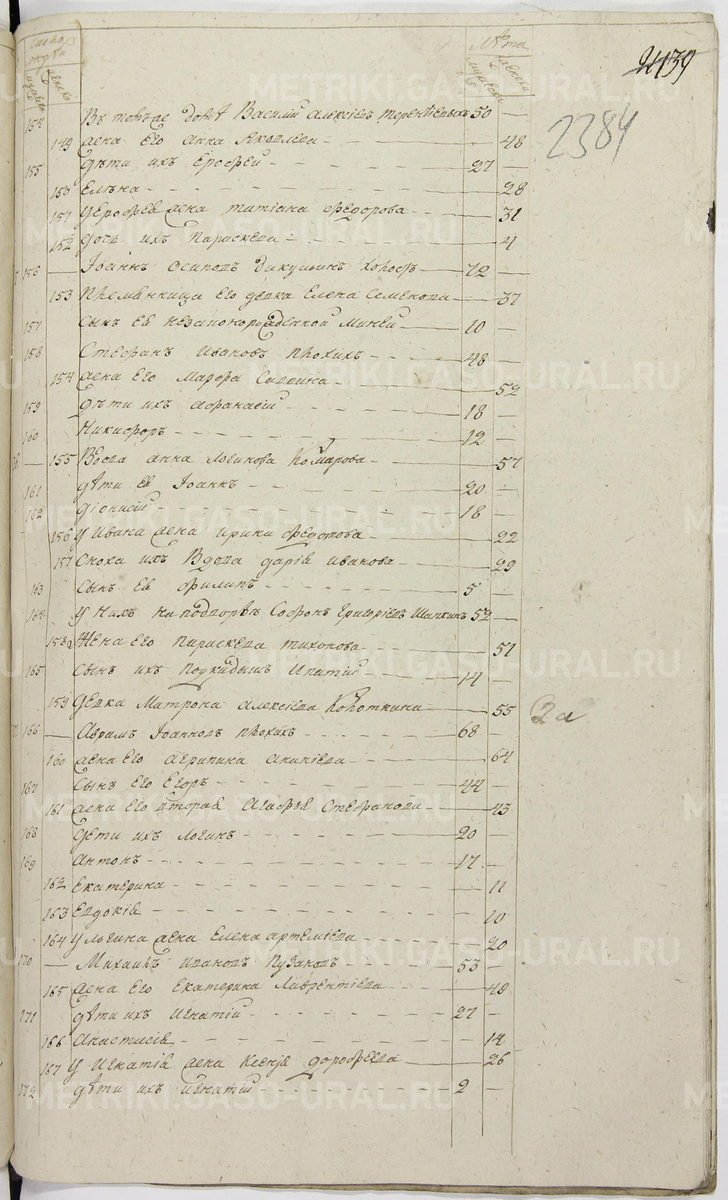 Лѣта
139
2384
154 Въ томъ же дворѣ Василий Алексѣевъ Терентьевыхъ 50
149 жена его Анна Яковлева 48
155 дѣти ихъ Ерофей 27
150 Елена 28
151 у Ерофея жена Татиана Федорова 31
152 дочь ихъ Параскева 4
156 Іоаннъ Осиповъ холостъ 72
153 Племянница его девка Елена Семенова 37
157 Сынъ ея незаконорожденной Миней 10
158 Стефанъ Ивановъ Плохихъ 48
154 жена его Марфа Саввина 52
159 дѣти ихъ Афанасий 18
160 Никифоръ 12
155 Вдова Анна Логинова Комарова 57
161 дѣти ея Іоаннъ 20
162 Дионисий 18
156 у Ивана жена Ирина Федотова 22
157 Сноха ихъ вдова Дария Иванова 29
163 Сынъ ея Филипъ 5
164 у нихъ на подворьѣ Софронъ Григориевъ Шапкинъ 52
158 Жена его Параскева Тихонова 51
165 Сынъ ихъ подкидышъ Ипатий 14
159 девка Матрона Алексиева Короткина 55
2а
166 Аврамъ Іоанновъ Плохихъ 68
160 жена его Агрипина 64
167 Сынъ его Егоръ 44
161 жена его вторая Агафья Стефанова 43
168 дети ихъ Логинъ 20
169 Антонъ 17
162 Екатерина 11
163 Евдокия 10
164 у Логина жена Елена Артемиева 20
170 Михаилъ Ивановъ Пузановъ 53
165 жена его Екатерина Лаврентиева 49
171 дѣти ихъ Игнатий 27
166 Анастасия 14
167 у Игнатия жена Ксения Дорофеева 26
172 дѣти ихъ Игнатий 2
METRIKI.GASO-URAL.RU